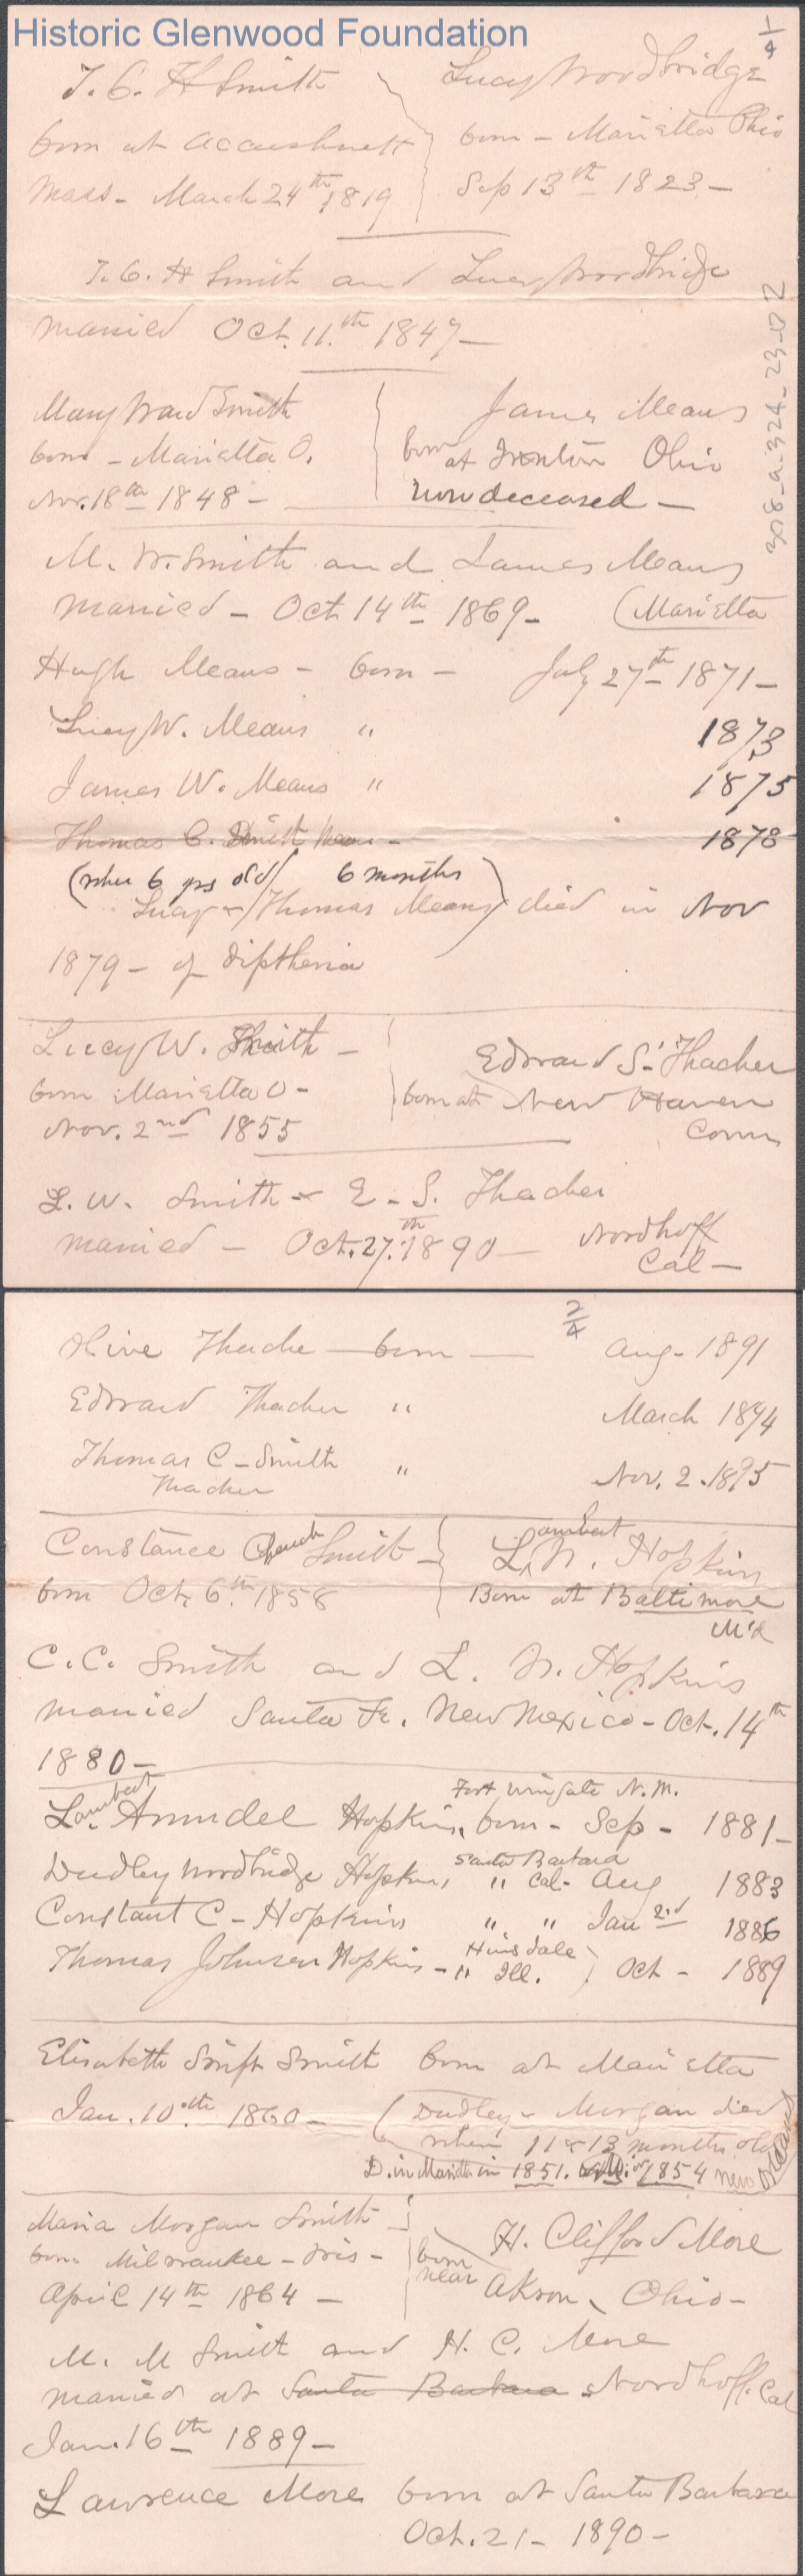 Historic Glenwood Foundation
1/4
T. C. H Smith
born at Accushnett
Mass - March 24th 1819
Lucy Woodbridge
born - Marietta Ohio
Sep 13th 1823 -
T. C. H Smith and Lucy Woodbridge
married Oct. 11.th 1847 -
318-a-324-23-02
Mary Ward Smith
born - Marietta O.
Nov. 18th 1848 -
James Means
born at Ironton Ohio
now deceased -
M. W. Smith and James Means
married - Oct 14th 1869 - (Marietta
Hugh Means - born - July 27th 1871 -
Lucy W. Means " 1873
James W. Means " 1875
Thomas C. Smith Means - 1878
(when 6 yrs old / 6 months)
Lucy & / Thomas Means died in Nov
1879 - of diptheria
Lucy W. Smith -
born Marietta O -
Nov. 2nd 1855
Edward S. Thacher
born at New Haven
Conn
L. W. Smith & E. S. Thacher
married - Oct. 27.th 1890 - Nordhoff
Cal -
2/4
Olive Thacher - born - Aug - 1891
Edward Thacher " March 1894
Thomas C - Smith " Nov. 2. 1895
Thacher
Constance Church Smith -
born Oct. 6.th 1858
Lambert
L. N. Hopkins
Born at Baltimore
M'd
C. C. Smith and L. N. Hopkins
married Santa Fe. New Mexico - Oct. 14th
1880 -
Lambert Fort Wingate N. M.
L. Arundel Hopkins, born - Sep - 1881 -
Santa Barbara
Dudley Woodbridge Hopkins, " Cal - Aug 1883
Constant C - Hopkins " " Jan 2nd 1886
Hinsdale
Thomas Johnson Hopkins - " Ill. ) Oct - 1889
Elisabeth Swift Smith born at Marietta
Jan. 10.th 1860 - (Dudley & Morgan died
when 11 & 13 months old
D. in Marietta in 1851. 1854 New Orleans
Maria Morgan Smith -
born Milwaukee - Wis -
April 14th 1864 -
H. Clifford More
born near Akron, Ohio -
M. M Smith and H. C. More
married at Santa Barbara Nordhoff. Cal
Jan. 16th 1889 -
Lawrence More born at Santa Barbara
Oct. 21 - 1890 -